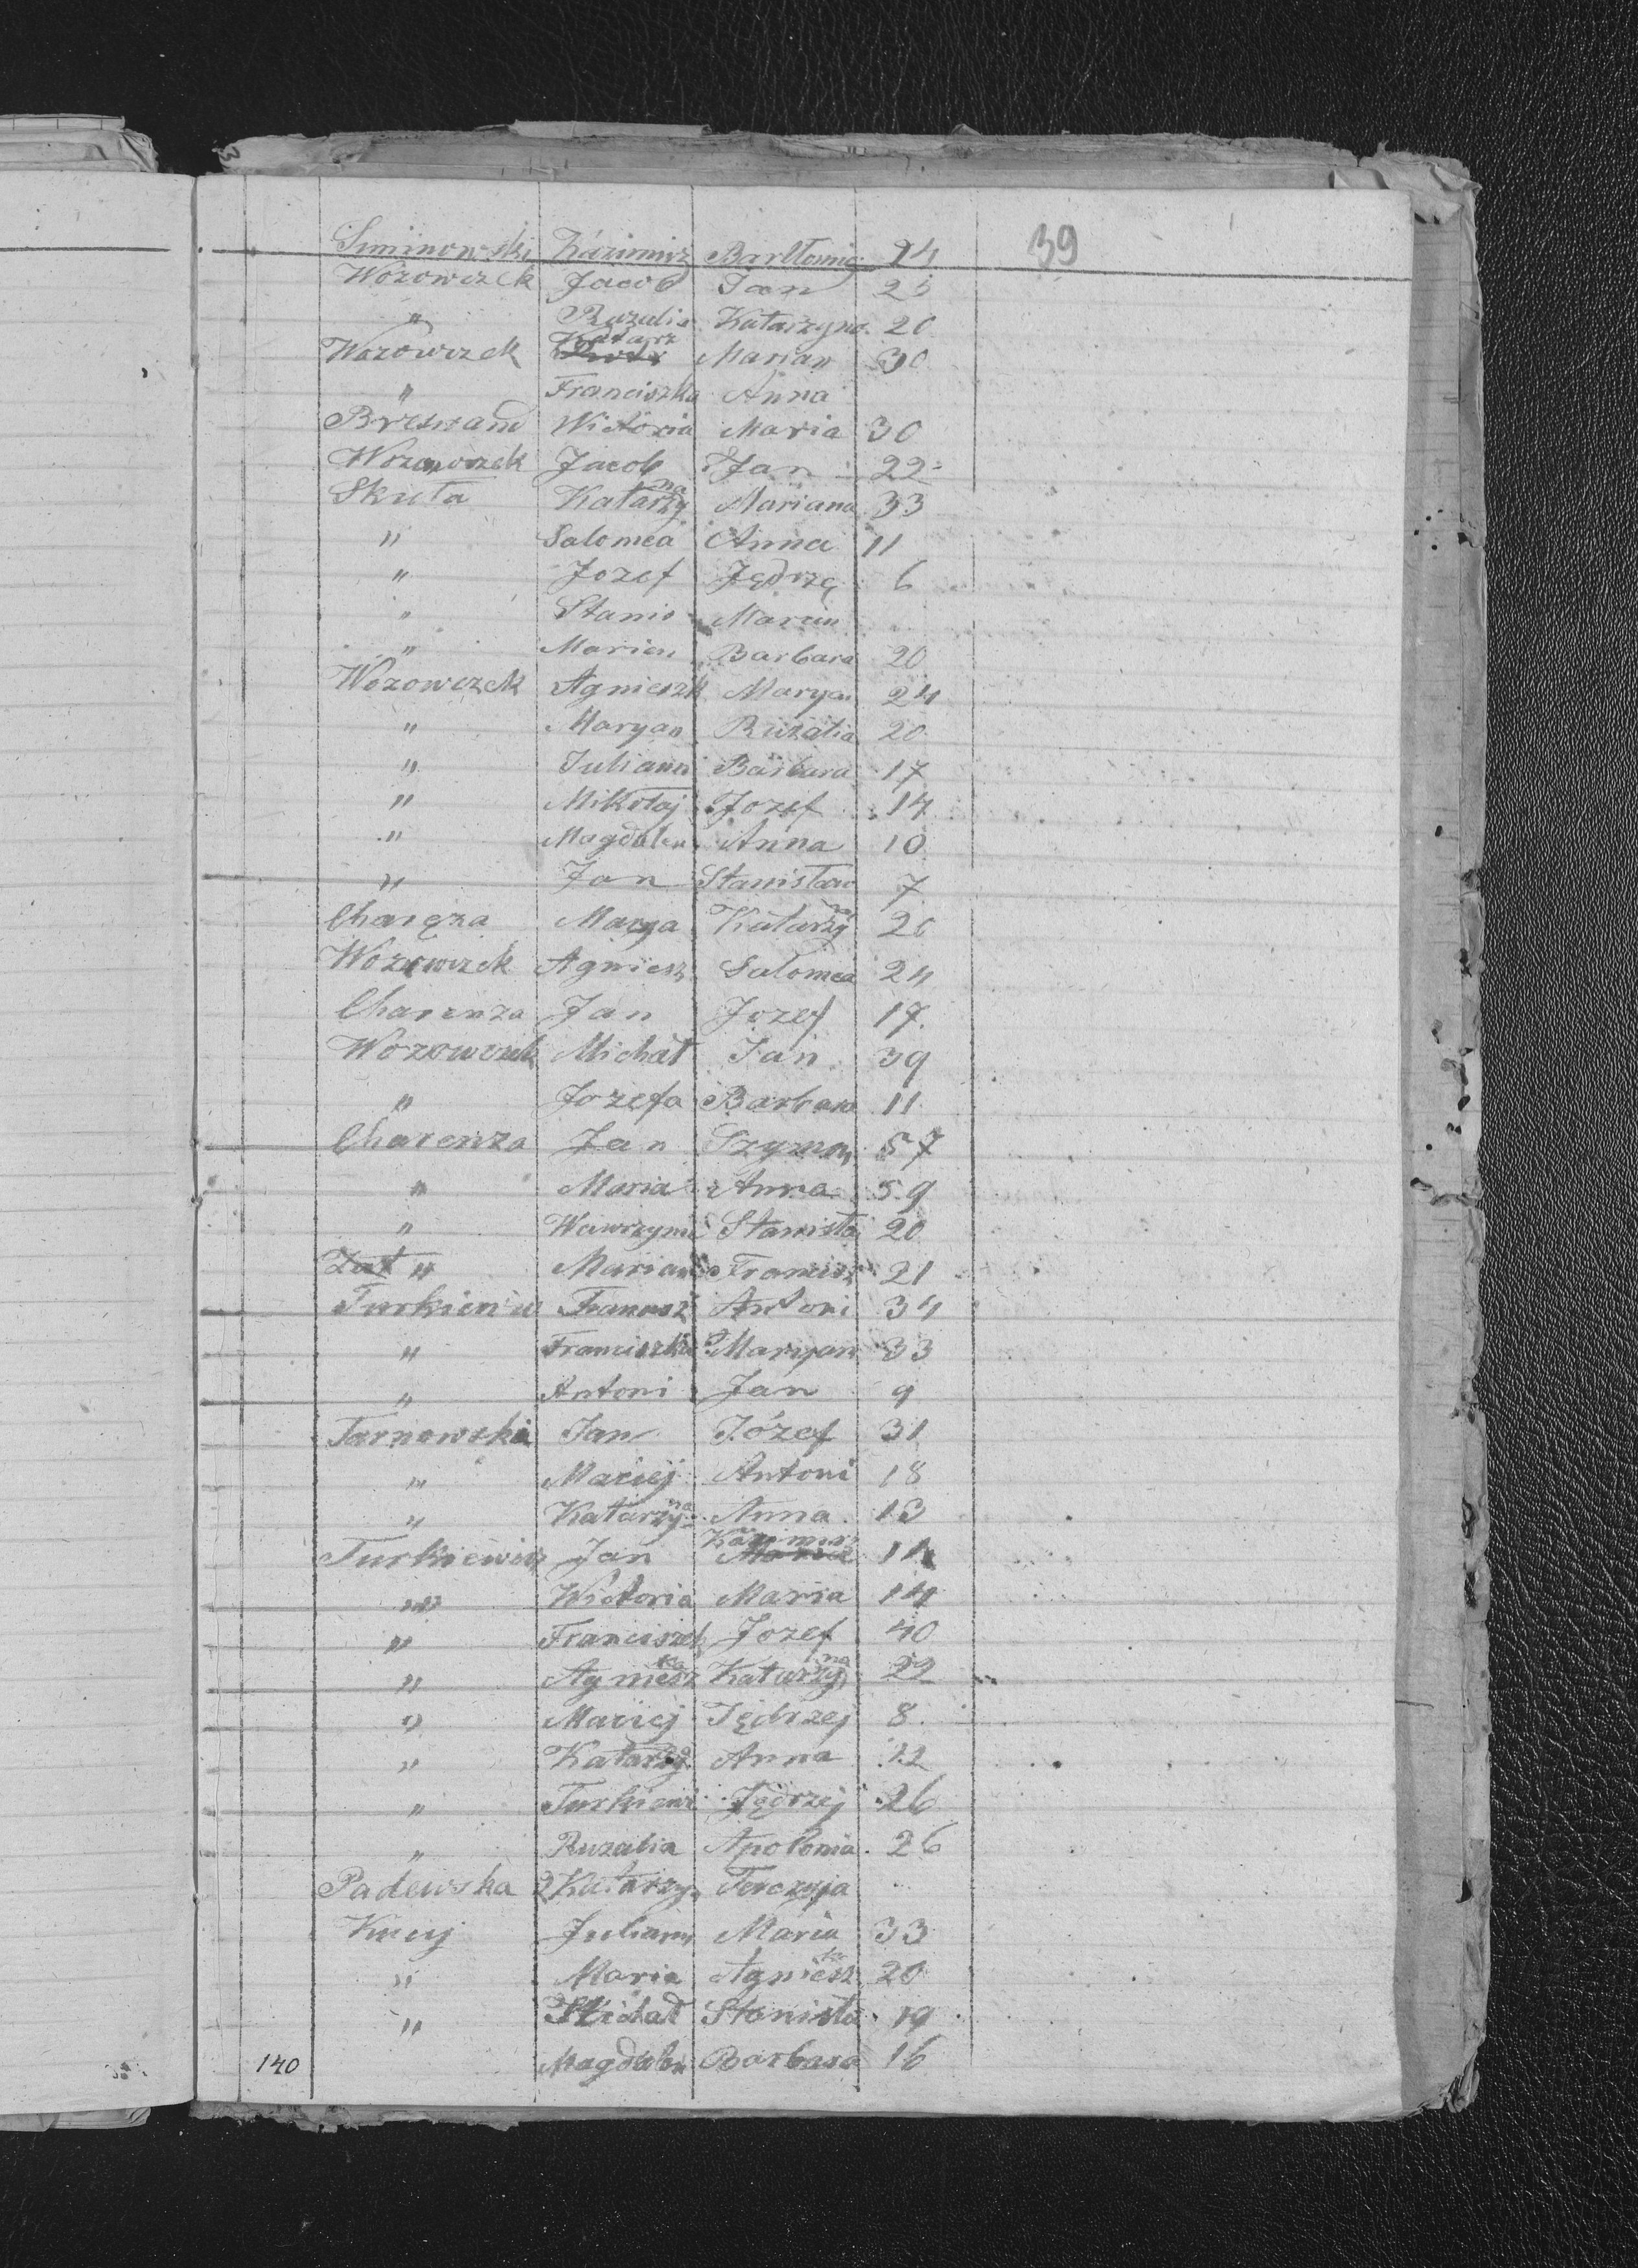 39
Siminowski Kazimirz Bartłomie 24
Wozowczek Jacob Jan 25
" Ruzalia Katarzyna 20
Wozowczek Katarz Marian 30
" Franciszka Anna
Wictoria Maria 30
Wozowczek Jacob Jan 22
Skuta Katarzyna Mariana 33
" Salomea Anna 11
" Jozef Jędrzę 6
" Stanis Marcin
" Marian Barbara 20
Wozowczek Agnieszk Maryan 24
" Maryan Ruzalia 20
" Juliann Barbara 17
" Mikołaj Jozef 14
" Magdalen Anna 10
" Jan Stanisław 7
Charęza Marya Katarzyna 20
Wozowczek Agniesz Salomea 24
Charenza Jan Jozef 17
Wozowczek Michał Jan 39
" Jozefa Barbara 11
Charenza Jan Szymon 57
" Maria Anna 59
" Wawrzynie Stanisła 20
" Marian Francisz 21
Turkieniw Francisz Antoni 34
" Franciszka Maryan 33
" Antoni Jan 9
Tarnowski Jan Józef 31
" Maciej Antoni 18
" Katarzyna Anna 13
Turkiewicz Jan Kazimirz 14
" Wictoria Maria 14
" Franciszek Jozef 40
" Agnieszka Katarzyna 22
" Maciej Jędrzej 8
" Katarzy Anna 22
" Turkiewi Jędrzej 26
" Ruzalia Apolonia 26
Padewska Katarzyn Terezyja
Kucy Juliann Maria 33
" Maria Agnieszka 20
" Michał Stanisła 19
140 Magdalen Barbara 16